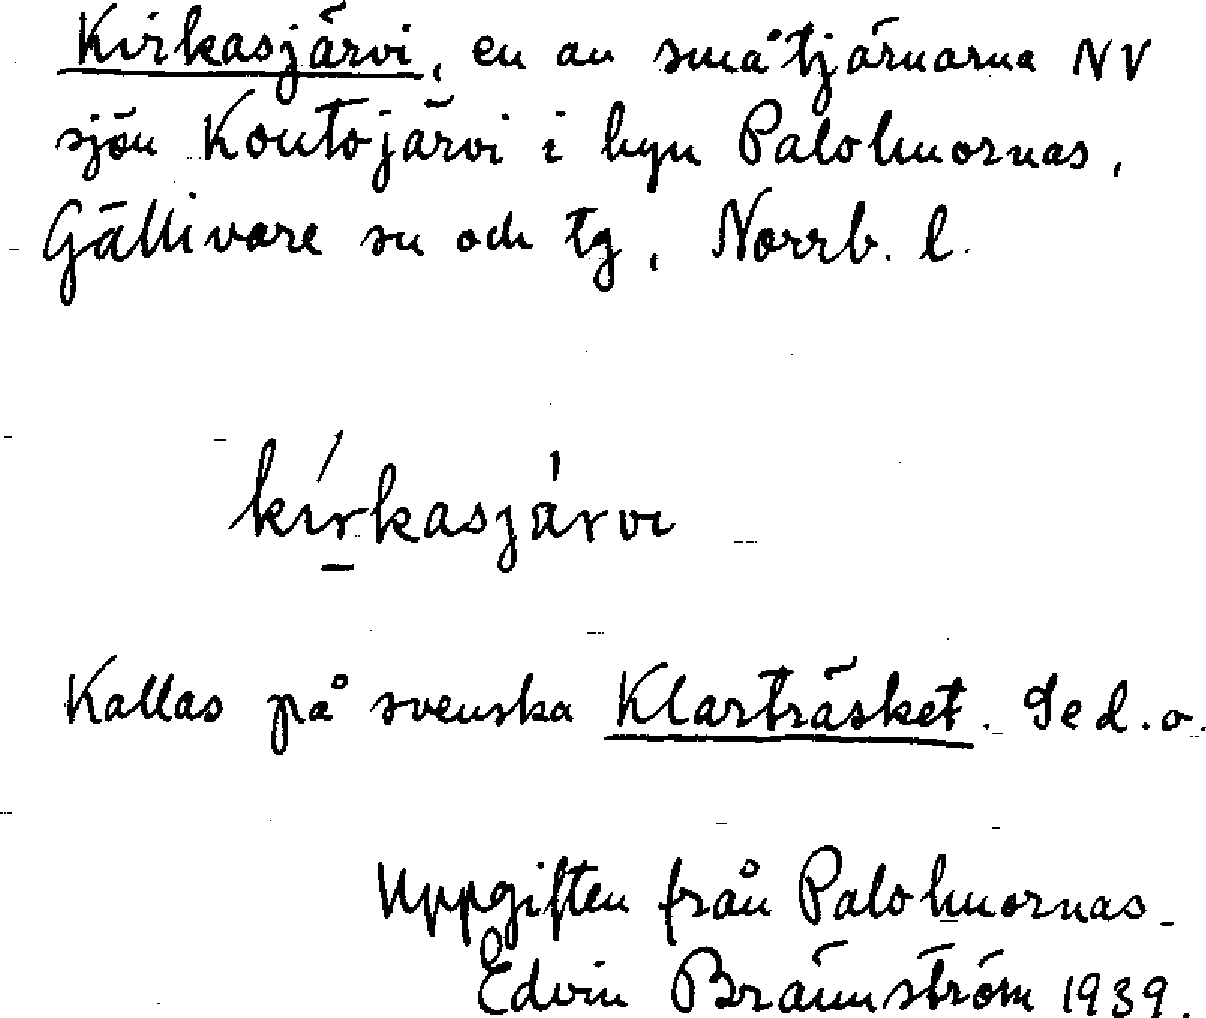 Kirkasjärvi, en av småtjärnarna NV
sjön Koutojärvi i byn Palohuornas,
Gällivare sn och tg, Norrb. l.
kírkasjárvi
Kallas på svenska Klarträsket. Se d.o.
Uppgiften från Palohuornas.
Edvin Brännström 1939.